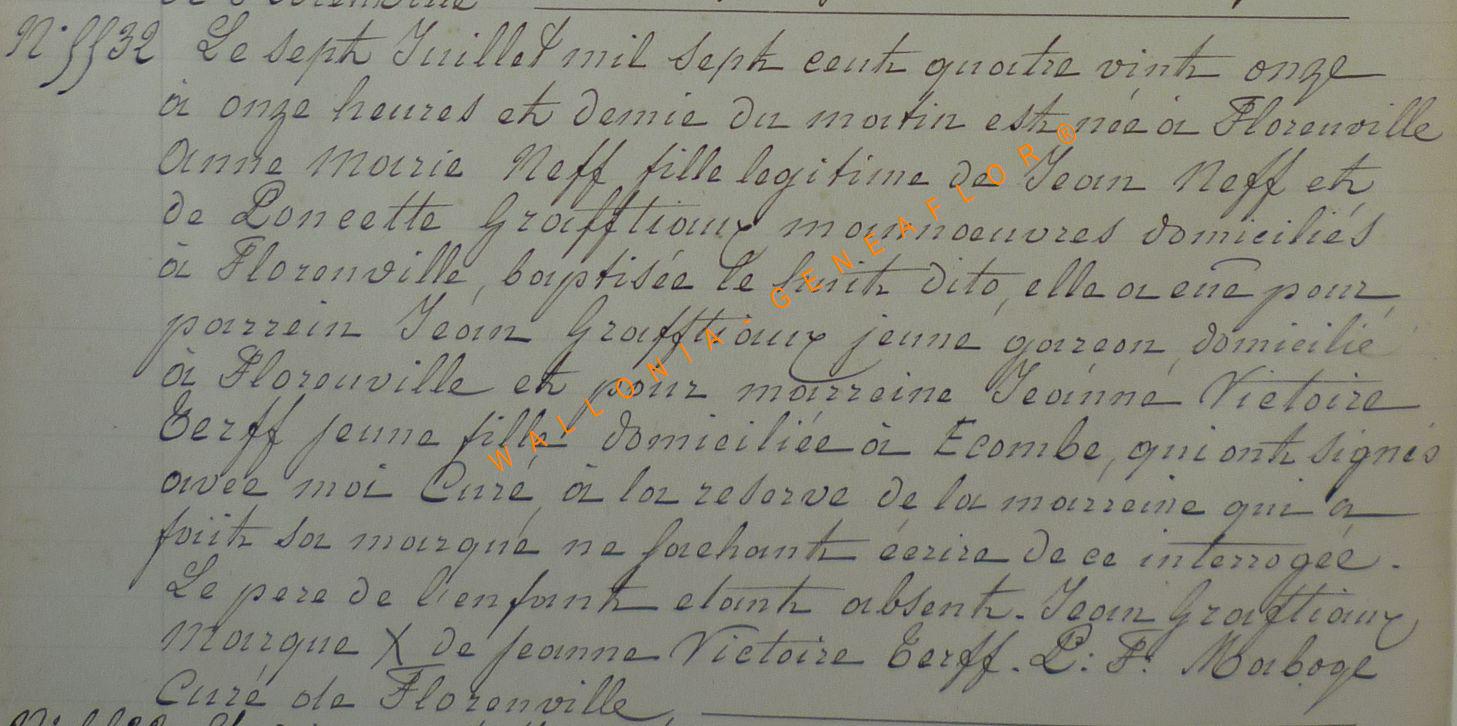 N° 5532 Le sept Juillet mil sept cent quatre vint onze
à onze heures et demie du matin est née à Florenville
Anne Marie Neff fille legitime de Jean Neff et
de Poncette Grafftiaux mannoeuvres domiciliés
à Florenville, baptisée le huit dito, elle a eûe pour
parrein Jean Grafftiaux jeune garcon domicilié
à Florenville et pour marreine Jeanne Victoire
Terff jeune fille domiciliée à Ecombe, qui ont signés
avec moi Curé, à la reserve de la marreine qui a
fait sa marque ne sachant écrire de ce interrogée.
Le pere de l'enfant etant absent. Jean Graftiaux
Marque X de Jeanne Victoire Terff. P: F: Maboge
Curé de Florenville
WALLONIA - GENEAFLOR®